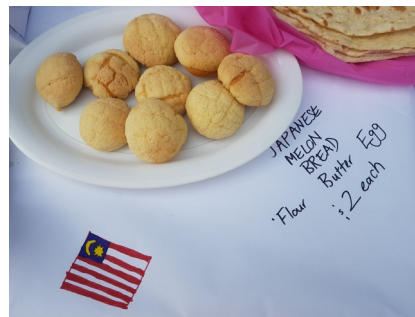 JAPANESE
MELON
BREAD
• Flour Butter Egg
$2 each